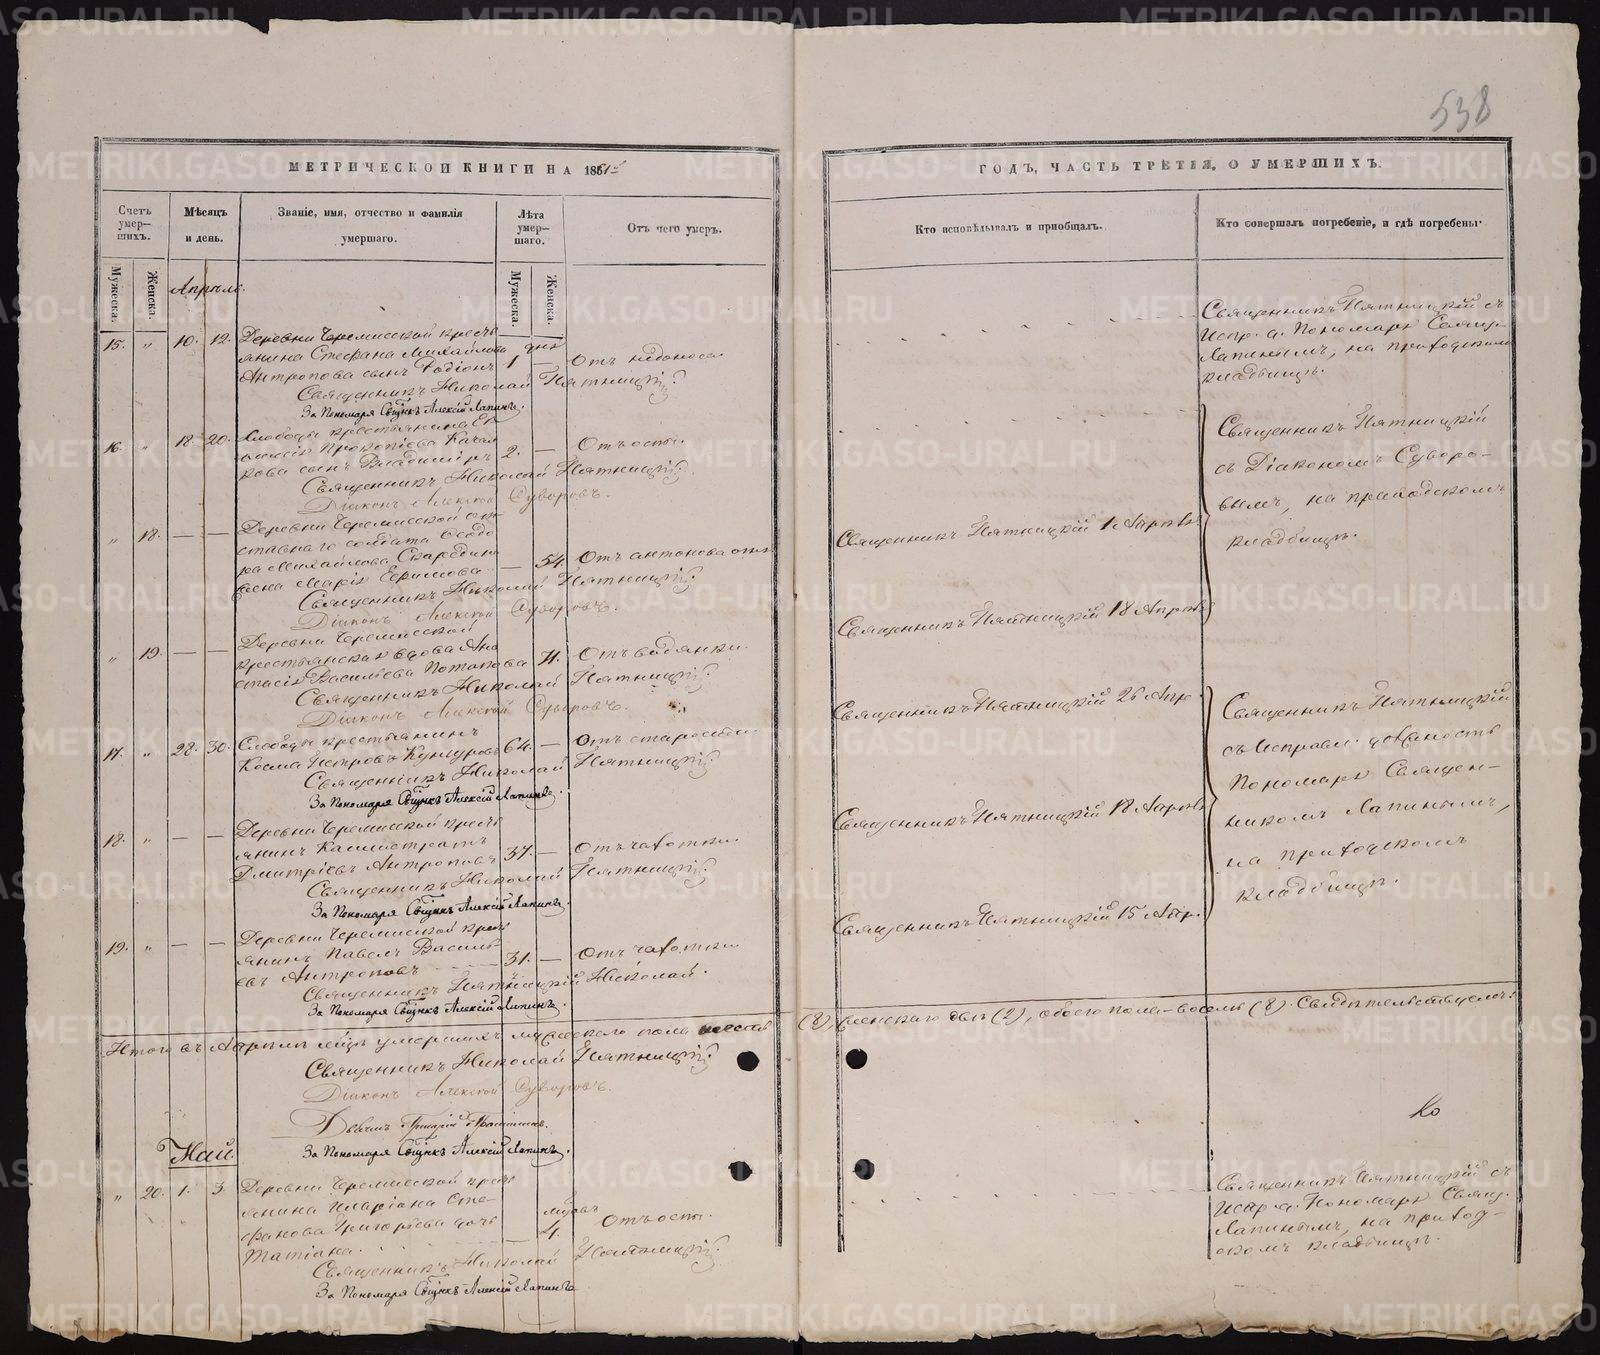 538
МЕТРИЧЕСКОЙ КНИГИ НА 186
ГОДЪ, ЧАСТЬ ТРЕТІЯ, О УМЕРШИХЪ.
Счетъ умер—шихъ.
Мѣсяцъ и день.
Званіе, имя, отчество и фамилія умершаго.
Лѣта умер—шаго.
Отъ чего умеръ.
Кто исповѣдывалъ и приобщалъ.
Кто совершалъ погребеніе, и гдѣ погребены.
Мужеска.
Женска.
Мужеска.
Женска.
Апрѣль.
15. " 10. 12. Деревни Черемисской кресть
янина Стефана Михайлова дня
Антропова сынъ Родіонъ 1 — Отъ недоноса
Священникъ Николай Пятницкій
За Пономаря Свщнкъ Алексій Лапинъ.
Священникъ Пятницкій съ
Испр. д. Пономаря Свящ.
Лапинымъ, на приходскомъ
кладбищѣ.
16. " 18. 20. Слободы крестьянина
Прокопіева
сынъ Владиміръ 2. — Отъ оспы.
Священникъ Николай Пятницкій
Діаконъ Алексей Суворовъ.
Священникъ Пятницкій
съ Діакономъ Суворо—
вымъ, на приходскомъ
кладбищѣ.
" 18. — — Деревни Черемисской от
ставнаго солдата Ѳеодо
ра Михайлова
жена Марія Ефимова — 54. Отъ антонова огня
Священникъ Николай Пятницкій
Діаконъ Алексей Суворовъ.
Священникъ Пятницкій Апрѣля
" 19. — — Деревни Черемисской
крестьянская вдова Ана
стасія Васильева Потапова 71. Отъ водянки.
Священникъ Николай Пятницкій
Діаконъ Алексей Суворовъ.
Священникъ Пятницкій 18 Апрѣля
17. " 28. 30. Слободы крестьянинъ
Косма Петровъ Кунгуровъ 64. — Отъ старости
Священникъ Николай Пятницкій
За Пономаря Свщнкъ Алексій Лапинъ.
Священникъ Пятницкій 26 Апр.
Священникъ Пятницкій
съ Исправл. должность
Пономаря Священ—
никомъ Лапинымъ,
на приходскомъ
кладбищѣ.
18. " — — Деревни Черемисской кресть
янинъ Калистратъ
Дмитріевъ Антроповъ 37. — Отъ чахотки.
Священникъ Николай Пятницкій
За Пономаря Свщнкъ Алексій Лапинъ.
Священникъ Пятницкій 18 Апрѣля
19. " — — Деревни Черемисской кресть
янинъ Павелъ Василь
евъ Антроповъ 31. — Отъ чахотки
Священникъ Пятницкій Николай.
За Пономаря Свщнкъ Алексій Лапинъ.
Священникъ Пятницкій 15 Апр.
Итого въ Апрѣлѣ умершихъ мужескаго пола (8) женскаго двѣ (2), обоего пола—восемь (8). Свидѣтельствуемъ:
Священникъ Николай Пятницкій
Діаконъ Алексей Суворовъ.
За Пономаря Свщнкъ Алексій Лапинъ.
Ко
Май
" 20. 1. 3. Деревни Черемисской кресть
янина Иларіона Сте—
фанова Григорьева дочь
Татіана. 4. Отъ оспы.
Священникъ Николай Пятницкій
За Пономаря Свщнкъ Алексій Лапинъ
Священникъ Пятницкій съ
Испр. д. Пономаря Свящ.
Лапинымъ, на приход—
скомъ кладбищѣ.
METRIKI.GASO-URAL.RU